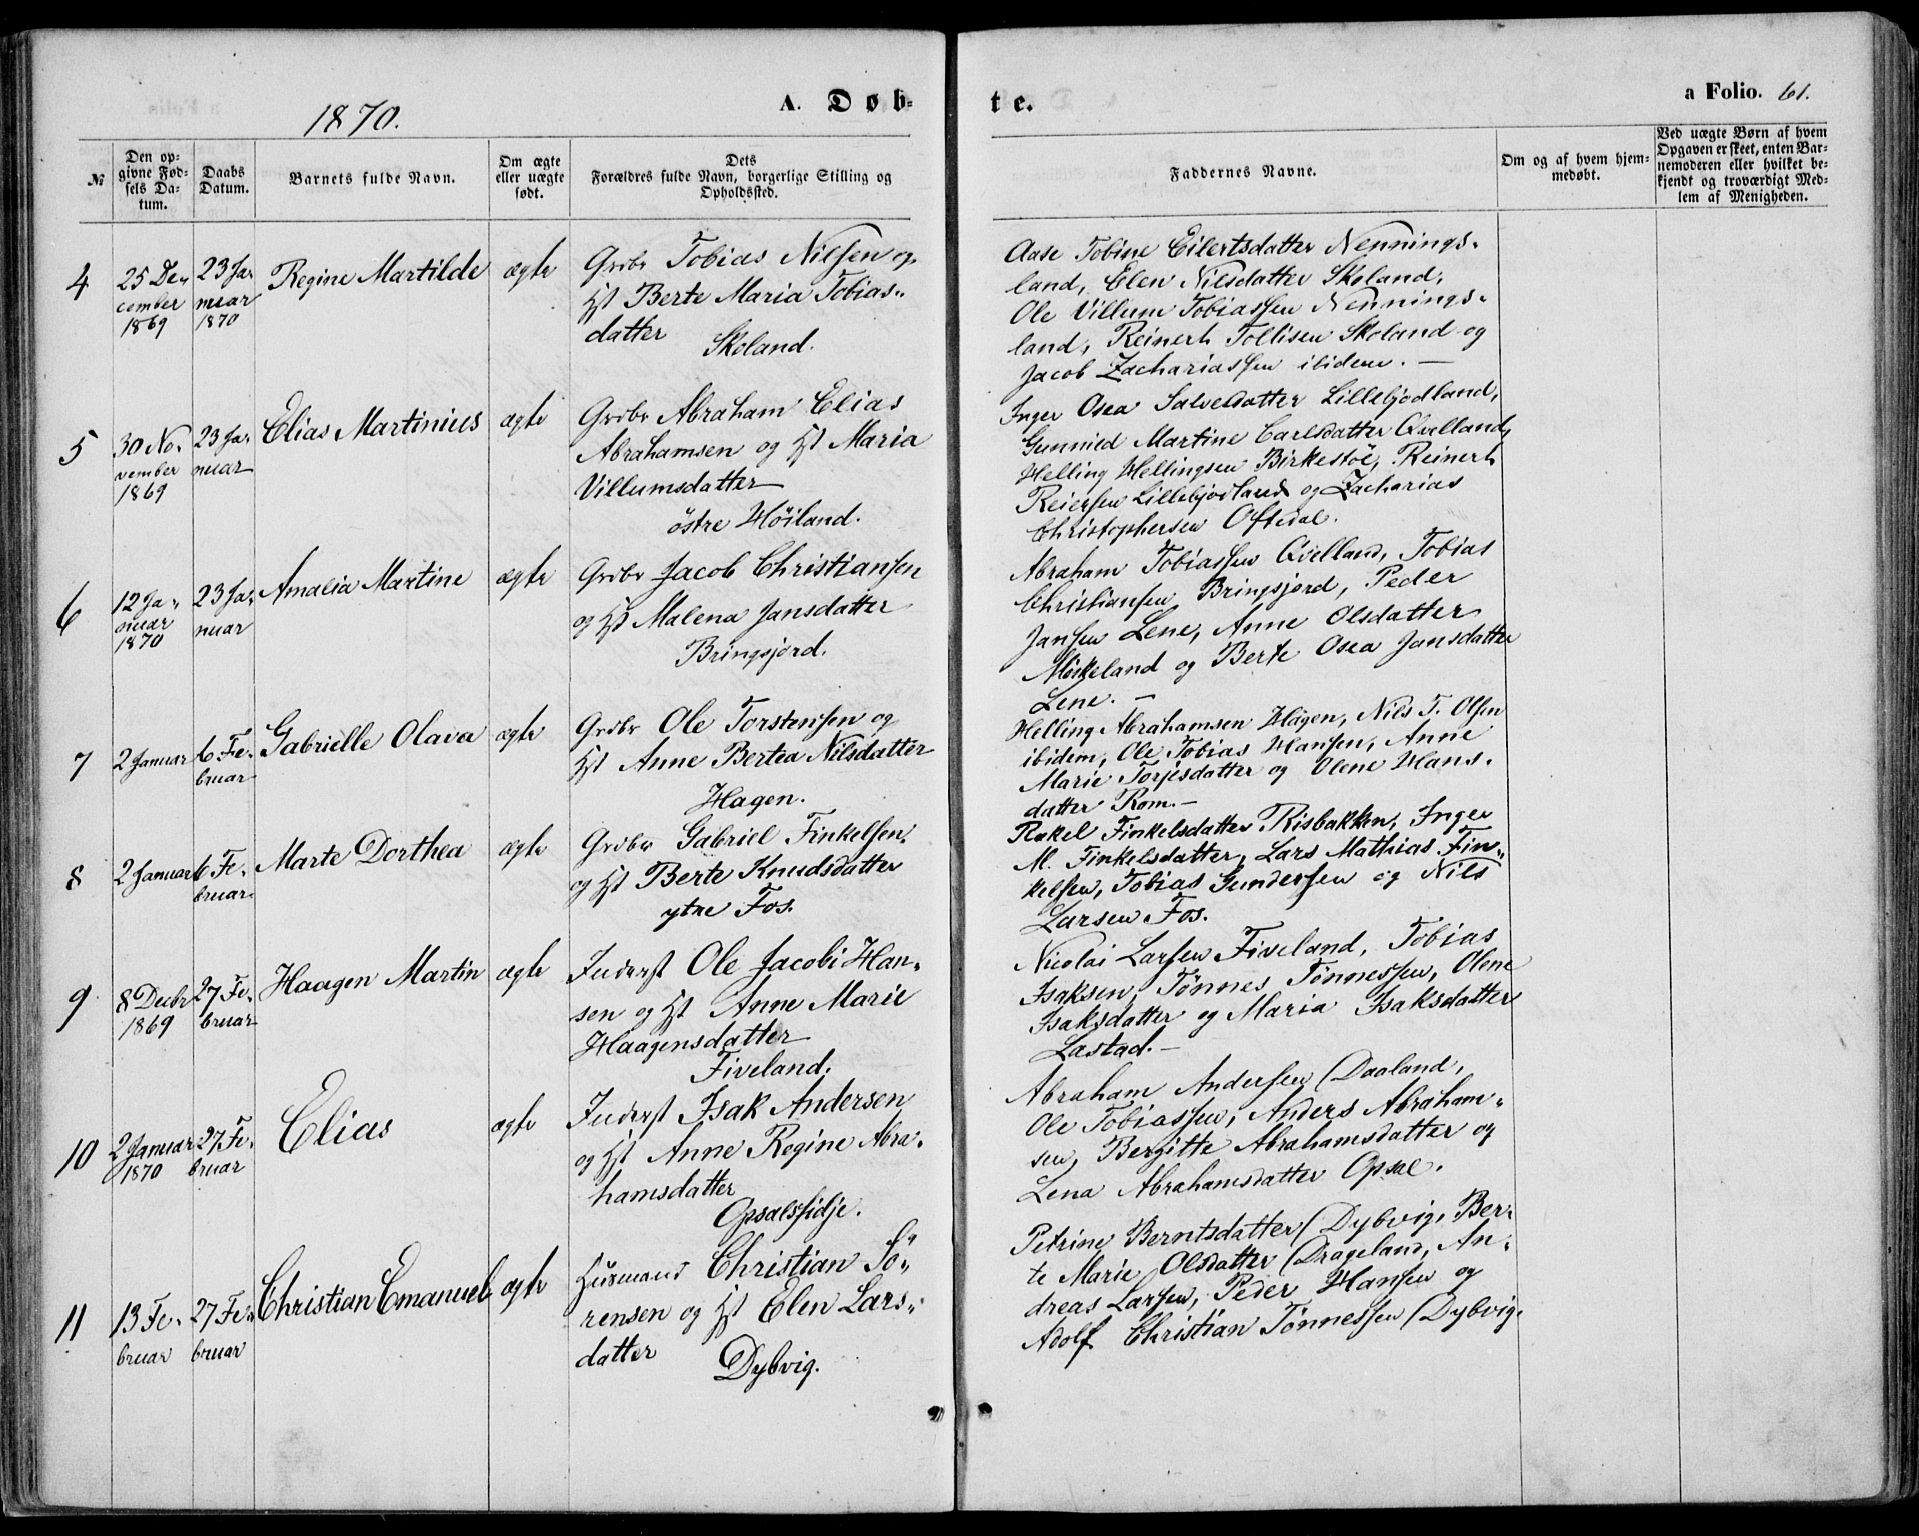 1870.
A. Døb-
te.
a Folio. 61.
№
Den op-
givne Fød-
sels Da-
tum.
Daabs
Datum.
Barnets fulde Navn.
Om ægte
eller uægte
født.
Dets
Forældres fulde Navn, borgerlige Stilling og
Opholdssted.
Faddernes Navne.
Om og af hvem hjem-
medøbt.
Ved uægte Børn af hvem
Opgaven er skeet, enten Bar-
nemoderen eller hvilket be-
kjendt og troværdigt Med-
lem af Menigheden.
4
25 De-
cember
1869
23 Ja-
nuar
1870
Regine Martilde
ægte
Grdbr Tobias Nilsen og
Hst Berte Maria Tobias-
datter
Skoland.
Aase Tobine Eilertsdatter Nennings-
land, Elen Nilsdatter Skoland,
Ole Villum Tobiassen Nennings-
land, Reinert Tollisen Skoland og
Jacob Zachariassen ibidem. —
5
30 No-
vember
1869
23 Ja-
nuar
Elias Martinius
ægte
Grdbr Abraham Elias
Abrahamsen og Hst Maria
Villumsdatter
östre Höiland.
Inger Osea Salvesdatter Lillebjodland,
Gunnild Martine Carlsdatter Qvelland,
Helling Hellingsen Birkestöe, Reinert
Reiersen Lillebjodland og Zacharias
Christophersen Oftedal.
6
12 Ja-
nuar
1870
23 Ja-
nuar
Amalia Martine
ægte
Grdbr Jacob Christiansen
og Hst Malena Jansdatter
Bringsjord.
Abraham Tobiassen Qvelland, Tobias
Christiansen Bringsjord, Peder
Jansen Lene, Anne Olsdatter
Miskeland og Berte Osea Jansdatter
Lene. —
7
2 Januar
6 Fe-
bruar
Gabrielle Olava
ægte
Grdbr Ole Torstensen og
Hst Anne Bertea Nilsdatter
Hagen.
Helling Abrahamsen Hagen, Nils T. Olsen
ibidem, Ole Tobias Hansen, Anne
Marie Torjesdatter og Olene Hans-
datter Rom. —
8
2 Januar
6 Fe-
bruar
Marte Dorthea
ægte
Grdbr Gabriel Finkelsen
og Hst Berte Knudsdatter
ytre Fos.
Rakel Finkelsdatter Risbakken, Inger
M. Finkelsdatter, Lars Mathias Fin-
kelsen, Tobias Gundersen og Nils
Larsen Fos.
9
8 Decbr
1869
27 Fe-
bruar
Haagen Martin
ægte
Inderst Ole Jacobi Han-
sen og Hst Anne Marie
Haagensdatter
Fiveland.
Nicolai Larsen Fiveland, Tobias
Isaksen, Tønnes Tønnessen, Olene
Isaksdatter og Maria Isaksdatter
Lastad. —
10
2 Januar
1870
27 Fe-
bruar
Elias
ægte
Inderst Isak Andersen
og Hst Anne Regine Abra-
hamsdatter
Opsalsfidje.
Abraham Andersen Daaland,
Ole Tobiassen, Anders Abraham-
sen, Bergitte Abrahamsdatter og
Lena Abrahamsdatter Opsal.
11
13 Fe-
bruar
27 Fe-
bruar
Christian Emanuel
ægte
Husmand Christian Sö-
rensen og Hst Elen Lars-
datter
Dybvig.
Petrine Berntsdatter Dybvig, Ber-
te Marie Olsdatter Drageland, An-
dreas Larsen, Peder Hansen og
Adolf Christian Tønnessen Dybvig.